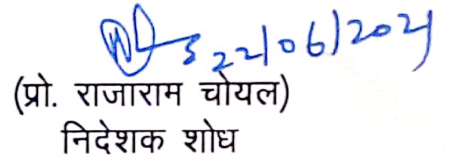 22/06/2021
(प्रो. राजाराम चोयल)
निदेशक शोध